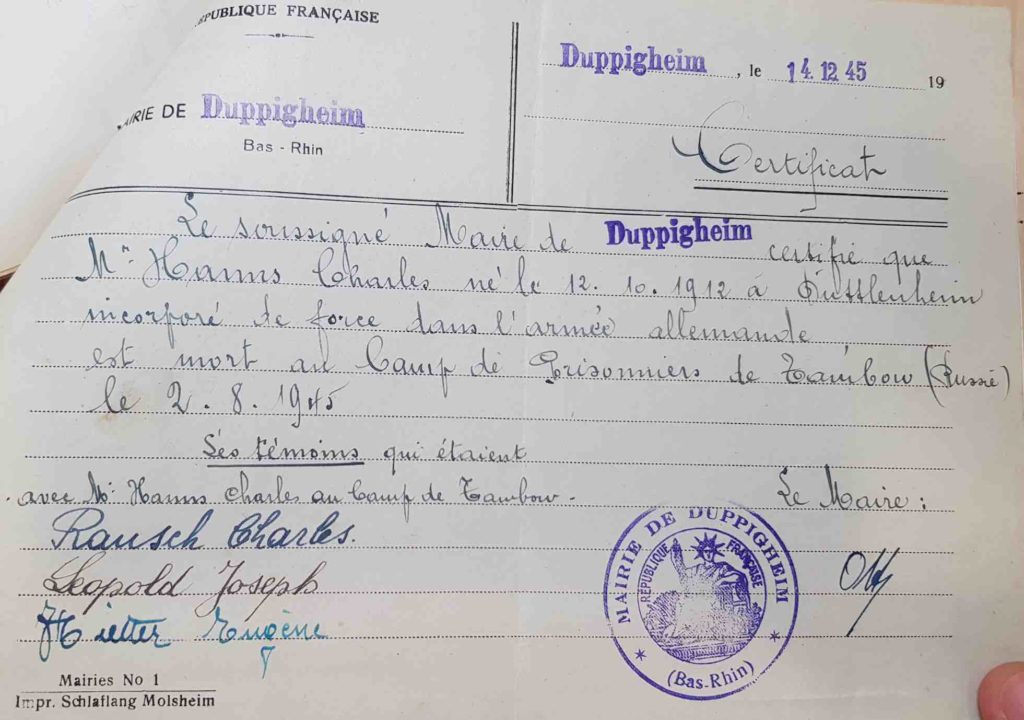 RÉPUBLIQUE FRANÇAISE
MAIRIE DE Duppigheim
Bas - Rhin
Duppigheim, le 14.12.45 19
Certificat
Le soussigné Maire de Duppigheim certifié que
Mr Hamms Charles né le 12. 10. 1912 à Duttlenheim
incorporé de force dans l'armée allemande
est mort au Camp de Prisonniers de Tambow (Russie)
le 2. 8. 1945
Les témoins qui étaient
avec Mr Hamms Charles au Camp de Tambow.
Le Maire :
Rausch Charles.
Leopold Joseph
Eugène
MAIRIE DE DUPPIGHEIM
RÉPUBLIQUE FRANÇAISE
(Bas-Rhin)
Mairies No 1
Impr. Schlaflang Molsheim